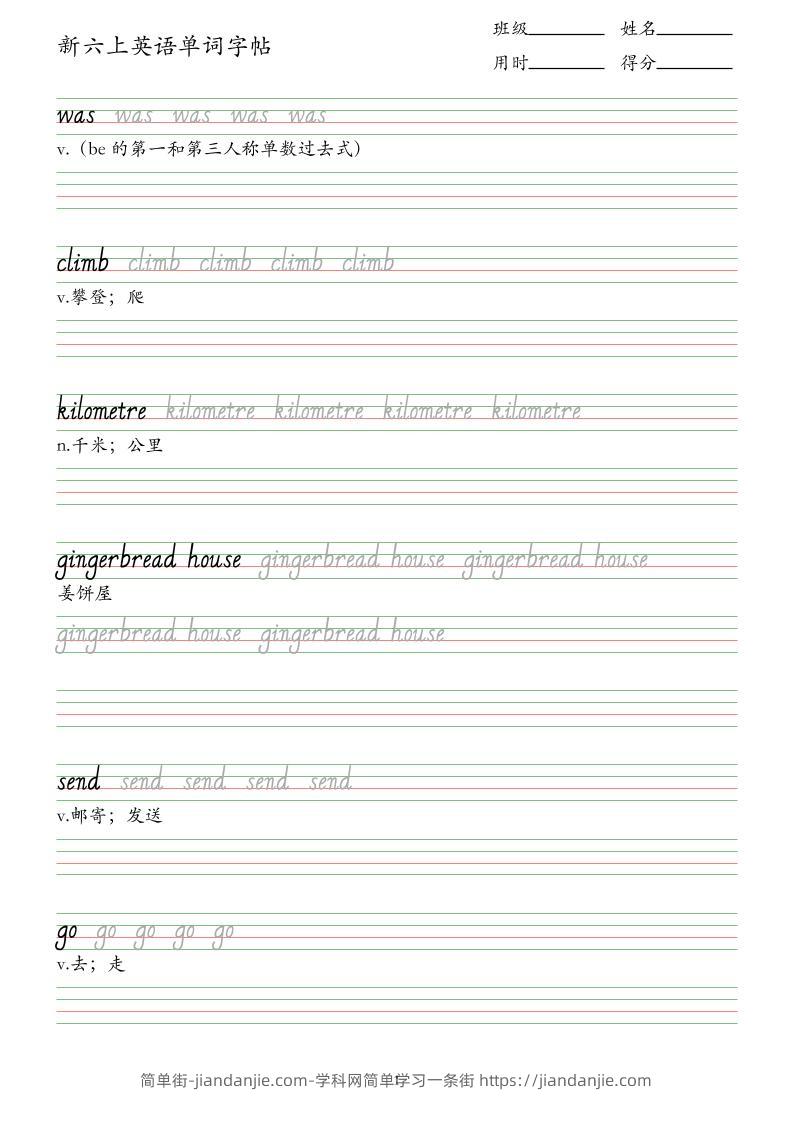 新六上英语单词字帖
班级 姓名
用时 得分
was was was was was
v.（be 的第一和第三人称单数过去式）
climb climb climb climb climb
v.攀登；爬
kilometre kilometre kilometre kilometre kilometre
n.千米；公里
gingerbread house gingerbread house gingerbread house
姜饼屋
gingerbread house gingerbread house
send send send send send
v.邮寄；发送
go go go go go
v.去；走
简单街-jiandanjie.com-学科网简单学习一条街 https://jiandanjie.com